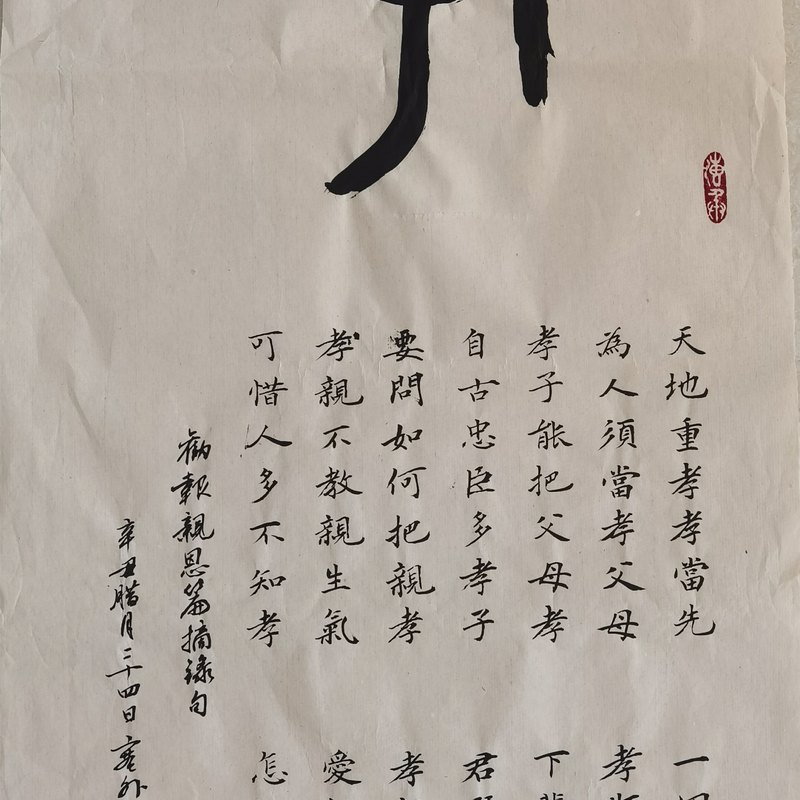 天地重孝孝當先 一
為人須當孝父母 孝
孝子能把父母孝 下
自古忠臣多孝子 君
要問如何把親孝 孝
孝親不教親生氣 愛
可惜人多不知孝 怎
勸報親恩篇摘錄句
辛丑腊月二十四日 塞外